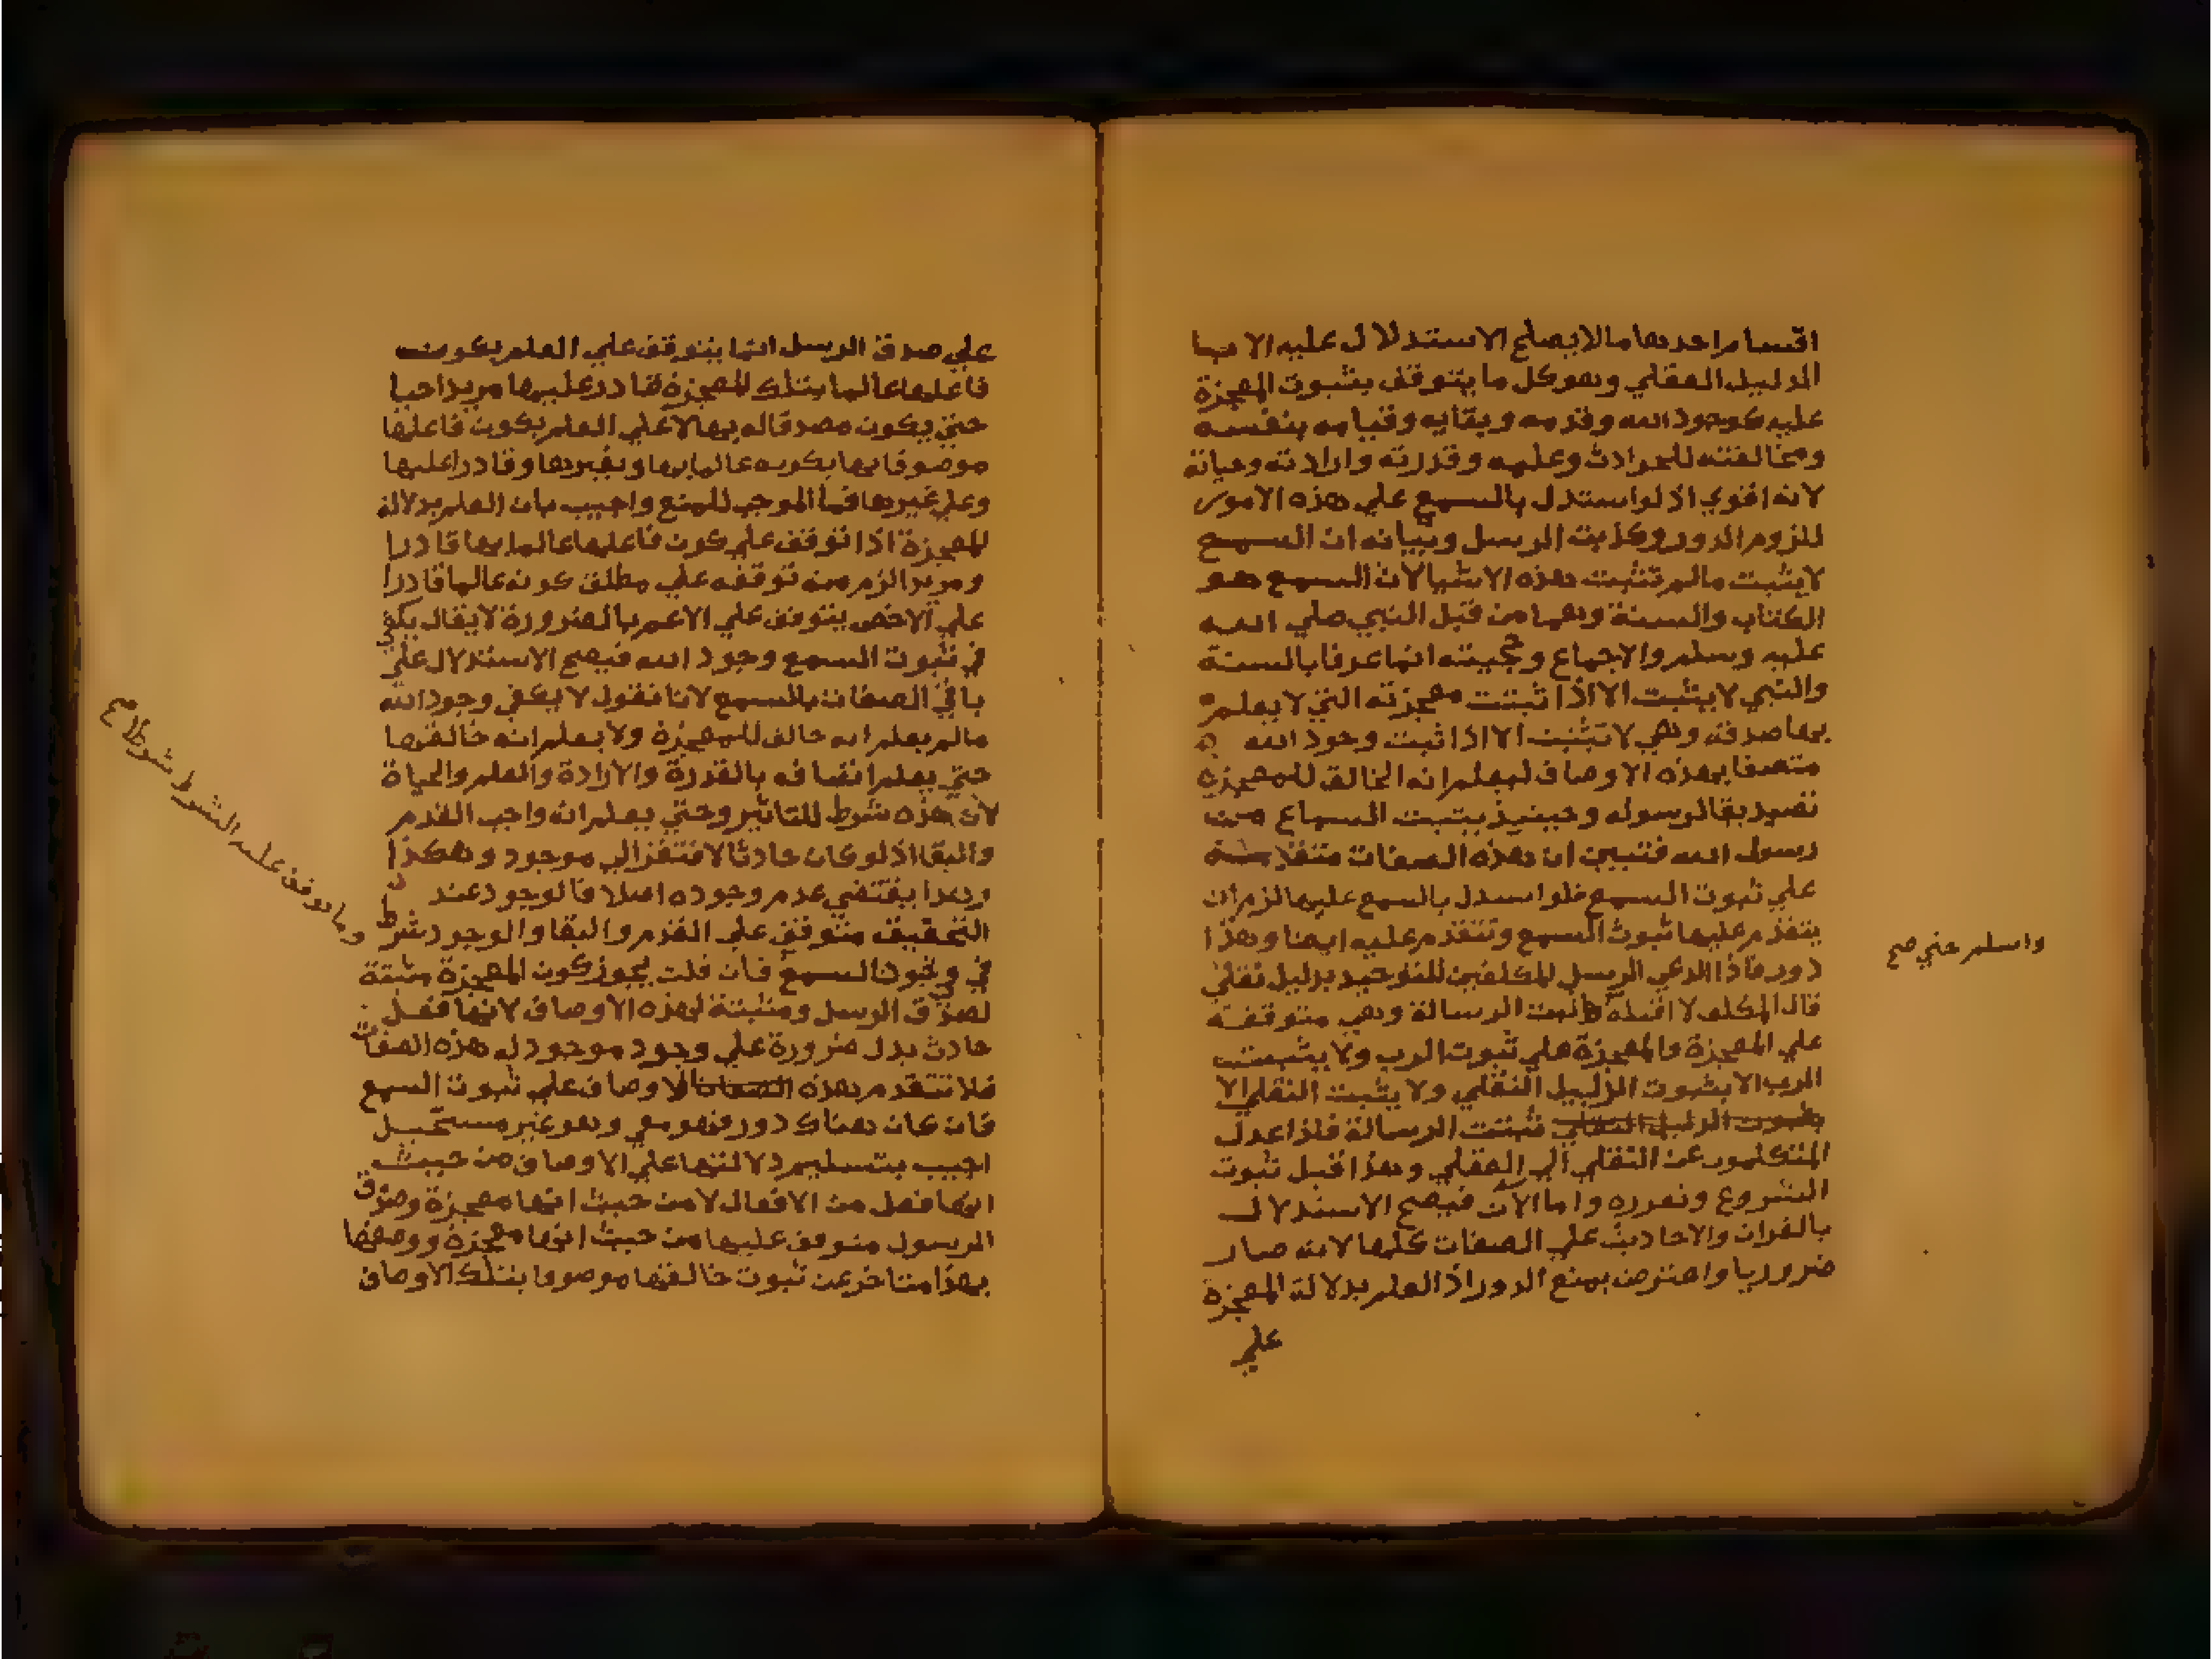 اقسام احدها ما لا يصلح الاستدلال عليه الا بها
الدليل العقلي وهو كل ما يتوقف بثبوت المعجزة
عليه كوجود الله وقدمه وبقايه وقيامه بنفسه
ومخالفته للحوادث وعلمه وقدرته وارادته وحياته
لانه اقوي اذ لو استدل بالسمع علي هذه الامور
للزوم الدور وكذبت الرسل وبيانه ان السمع
لا يثبت ما لم تثبت هذه الاشيا لان السمع هو
الكتاب والسنة وهما من قبل النبي صلي الله
عليه وسلم والاجماع وحجيته انما عرفنا بالسنة
والنبي لا يثبت الا اذا ثبتت معجزته التي لا يعلم
بها صدقه وهي لا تثبت الا اذا ثبت وجود الله
متصفا بهذه الاوصاف ليعلم انه الخالق للمعجزة
تصديقا لرسوله وحينيذ يتبت السماع من
رسول الله فتبين ان هذه الصفات متقدمة
علي ثبوت السمع فلو استدل بالسمع عليها لزم ان
يتقدم عليها ثبوت السمع وتتقدم عليه ايضا وهذا
دور فاذا ادعي الرسل للمكلفين للتوحيد بدليل نقلي
واسلم عني صح
قال المكلف لا اقبله الرسالة وهي متوقفة
علي المعجزة والمعجزة علي ثبوت الرب ولا يثبت
الرب الا بثبوت الدليل النقلي ولا يثبت النقلي الا
ثبتت الرسالة فلذا عدل
المتكلمون عن النقلي الي العقلي وهذا قبل ثبوت
الشروع وتقرره واما الآن فيصح الاستدلال
بالقران والاحاديث علي الصفات كلها لانه صار
ضروريا واعترض بمنع الدور اذ العلم بدلالة المعجزة
علي
علي صدق الرسل انما يتوقف علي العلم بكون
فاعلها عالما بتلك المعجزة قادر عليها مريدا حيا
حتي يكون مصدقا له بها لا علي العلم بكون فاعلها
موصوفا بها بكونه عالما بها وبغيرها وقادرا عليها
وعلي غيرها فما الموجب للمنع واجيب بان العلم بدلالة
المعجزة اذا توقف علي كون فاعلها عالما بها قادرا
ومريدا لزم منه توقفه علي مطلق كونه عالما قادرا
علي الاخص يتوقف علي الاعم بالضرورة لا يقال يكفي
في ثبوت السمع وجود الله فيصح الاستدلال علي
باقي الصفات بالسمع لانا نقول لا يكفي وجود الله
ما لم يعلم انه خالق للمعجزة ولا يعلم انه خالقها
حتي يعلم اتصافه بالقدرة والارادة والعلم والحياة
لان هذه شرط للتاثير وحتي يعلم انه واجب القدم
والبقا اذ لو كان حادثا لافتقر الي موجود وهكذا
وهذا يقتضي عدم وجوده اصلا فالوجود عند
التحقيق متوقف علي القدم والبقا والوجود شرط
وما توقف عليه الشرط شرط صح
في وجود السمع فان قلت يجوز كون المعجزة مثبتة
لصدق الرسل ومثبتة لهذه الاوصاف لانها فعل
حادث يدل ضرورة علي وجود موجود له هذه الصفات
فلا تتقدم هذه الاوصاف علي ثبوت السمع
فان كان هناك دور فهو معي وهو غير مستحيل
اجيب بتسليم دلالتها علي الاوصاف من حيث
انها فعل من الافعال لا من حيث انها معجزة وصدق
الرسول متوقف عليها من حيث انها معجزة ووصفها
بهذا متاخر عن ثبوت خالقها موصوفا بتلك الاوصاف